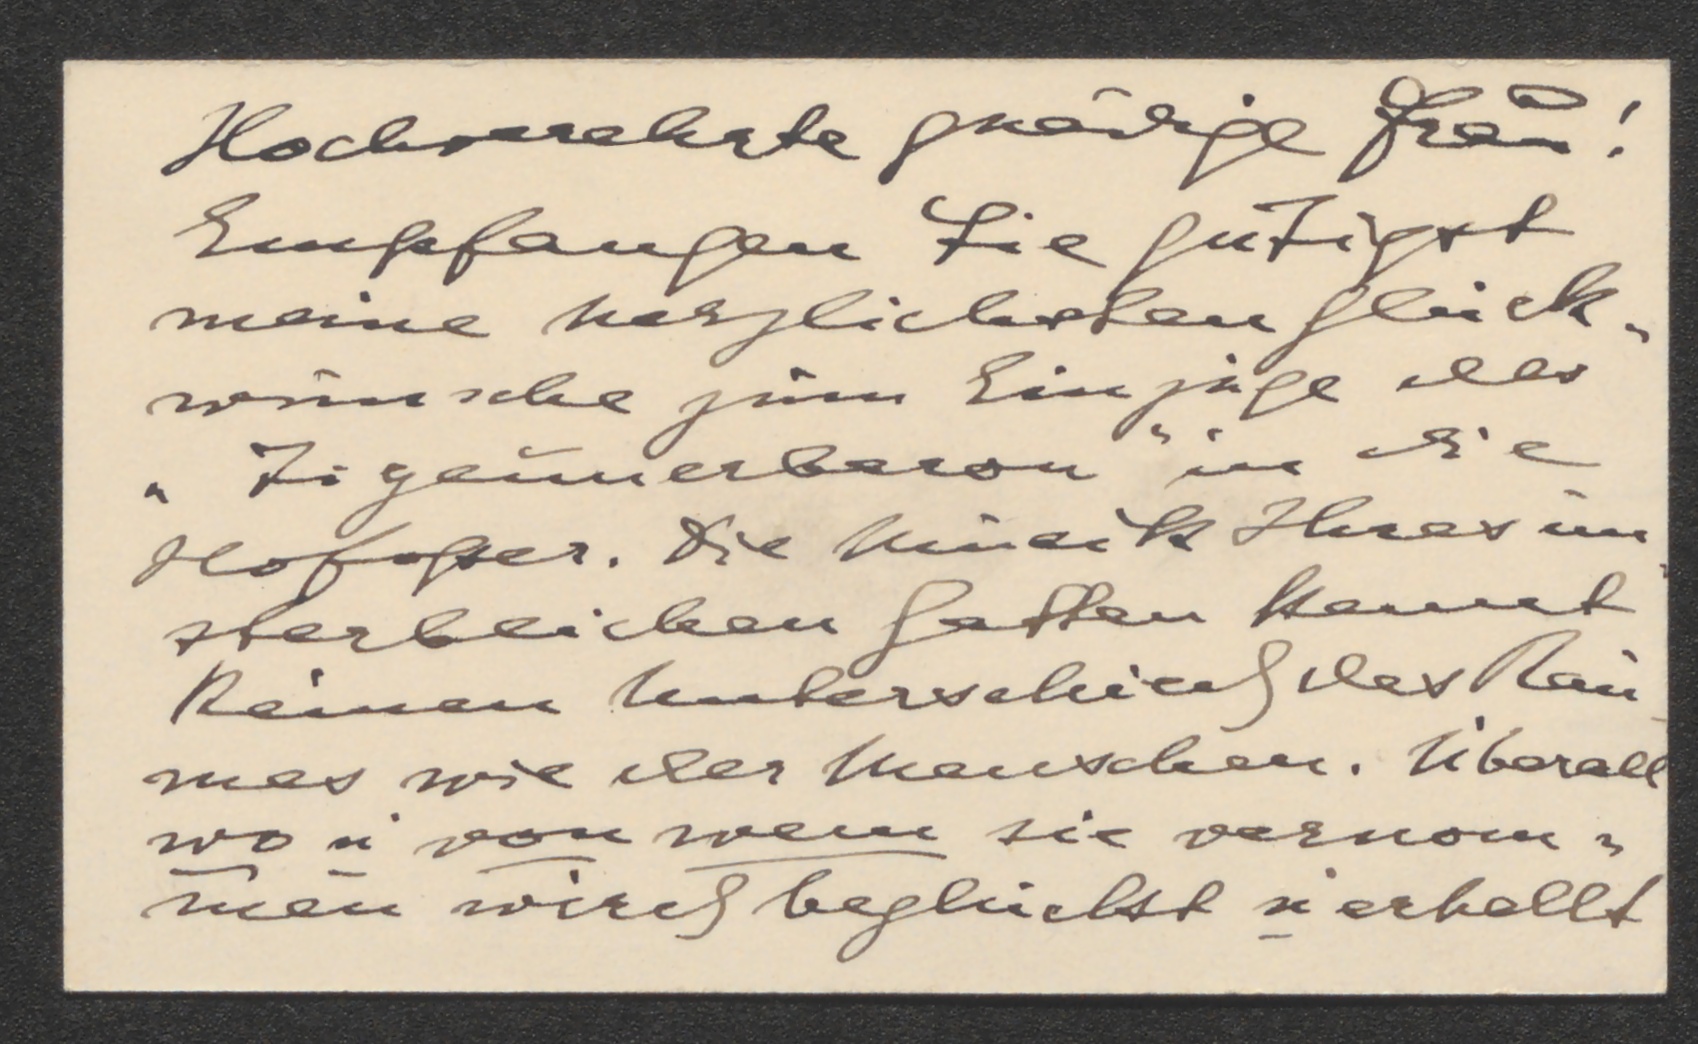 Hochverehrte gnädige Frau!
Empfangen Sie gütigst
meine herzlichsten Glück-
wünsche zum Einzuge des
„Zigeunerbaron" in die
Hofoper. Die Musik Ihres un-
sterblichen Gatten kennt
keinen Unterschied des Rau-
mes wie der Menschen. Überall
wo u von wem sie vernom-
men wird beglückt u erhellt